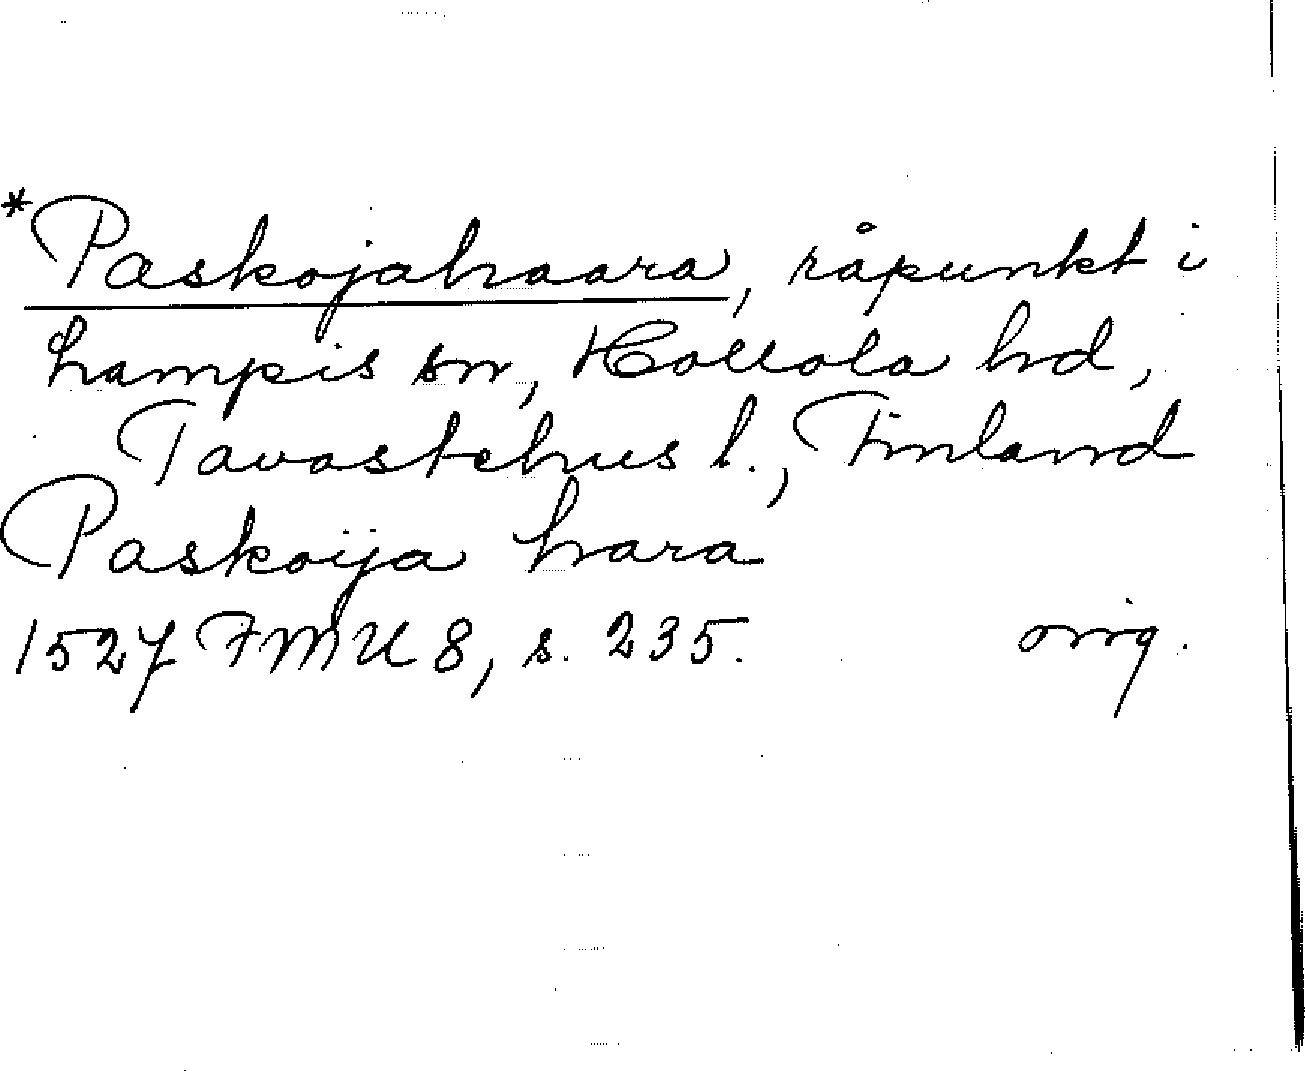 *Paskojahaara, råpunkt i
Lampis sn, Hollola hd,
Tavastehus l., Finland
Paskoija hara
1527 FMU 8, s. 235. orig.